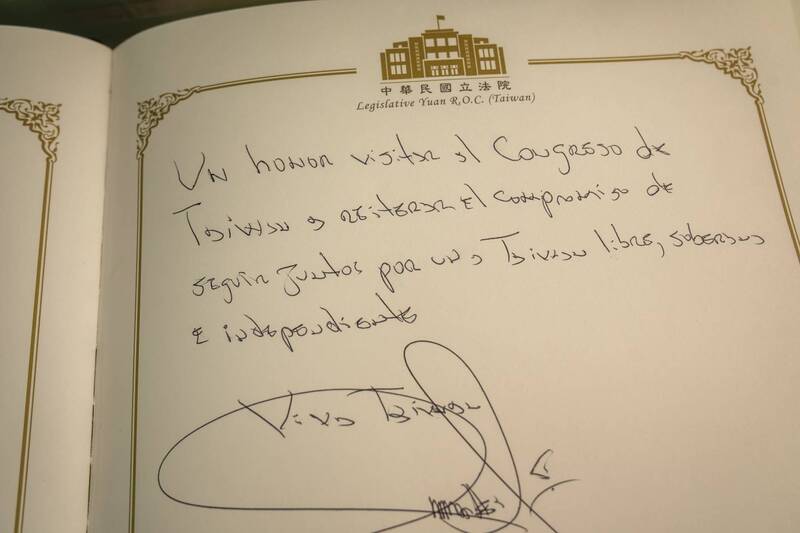 中華民國立法院
Legislative Yuan R.O.C. (Taiwan)
Un honor visitar el Congreso de
Taiwan y reiterar el compromiso de
seguir juntos por una Taiwan libre, soberana
e independiente
Viva Taiwan